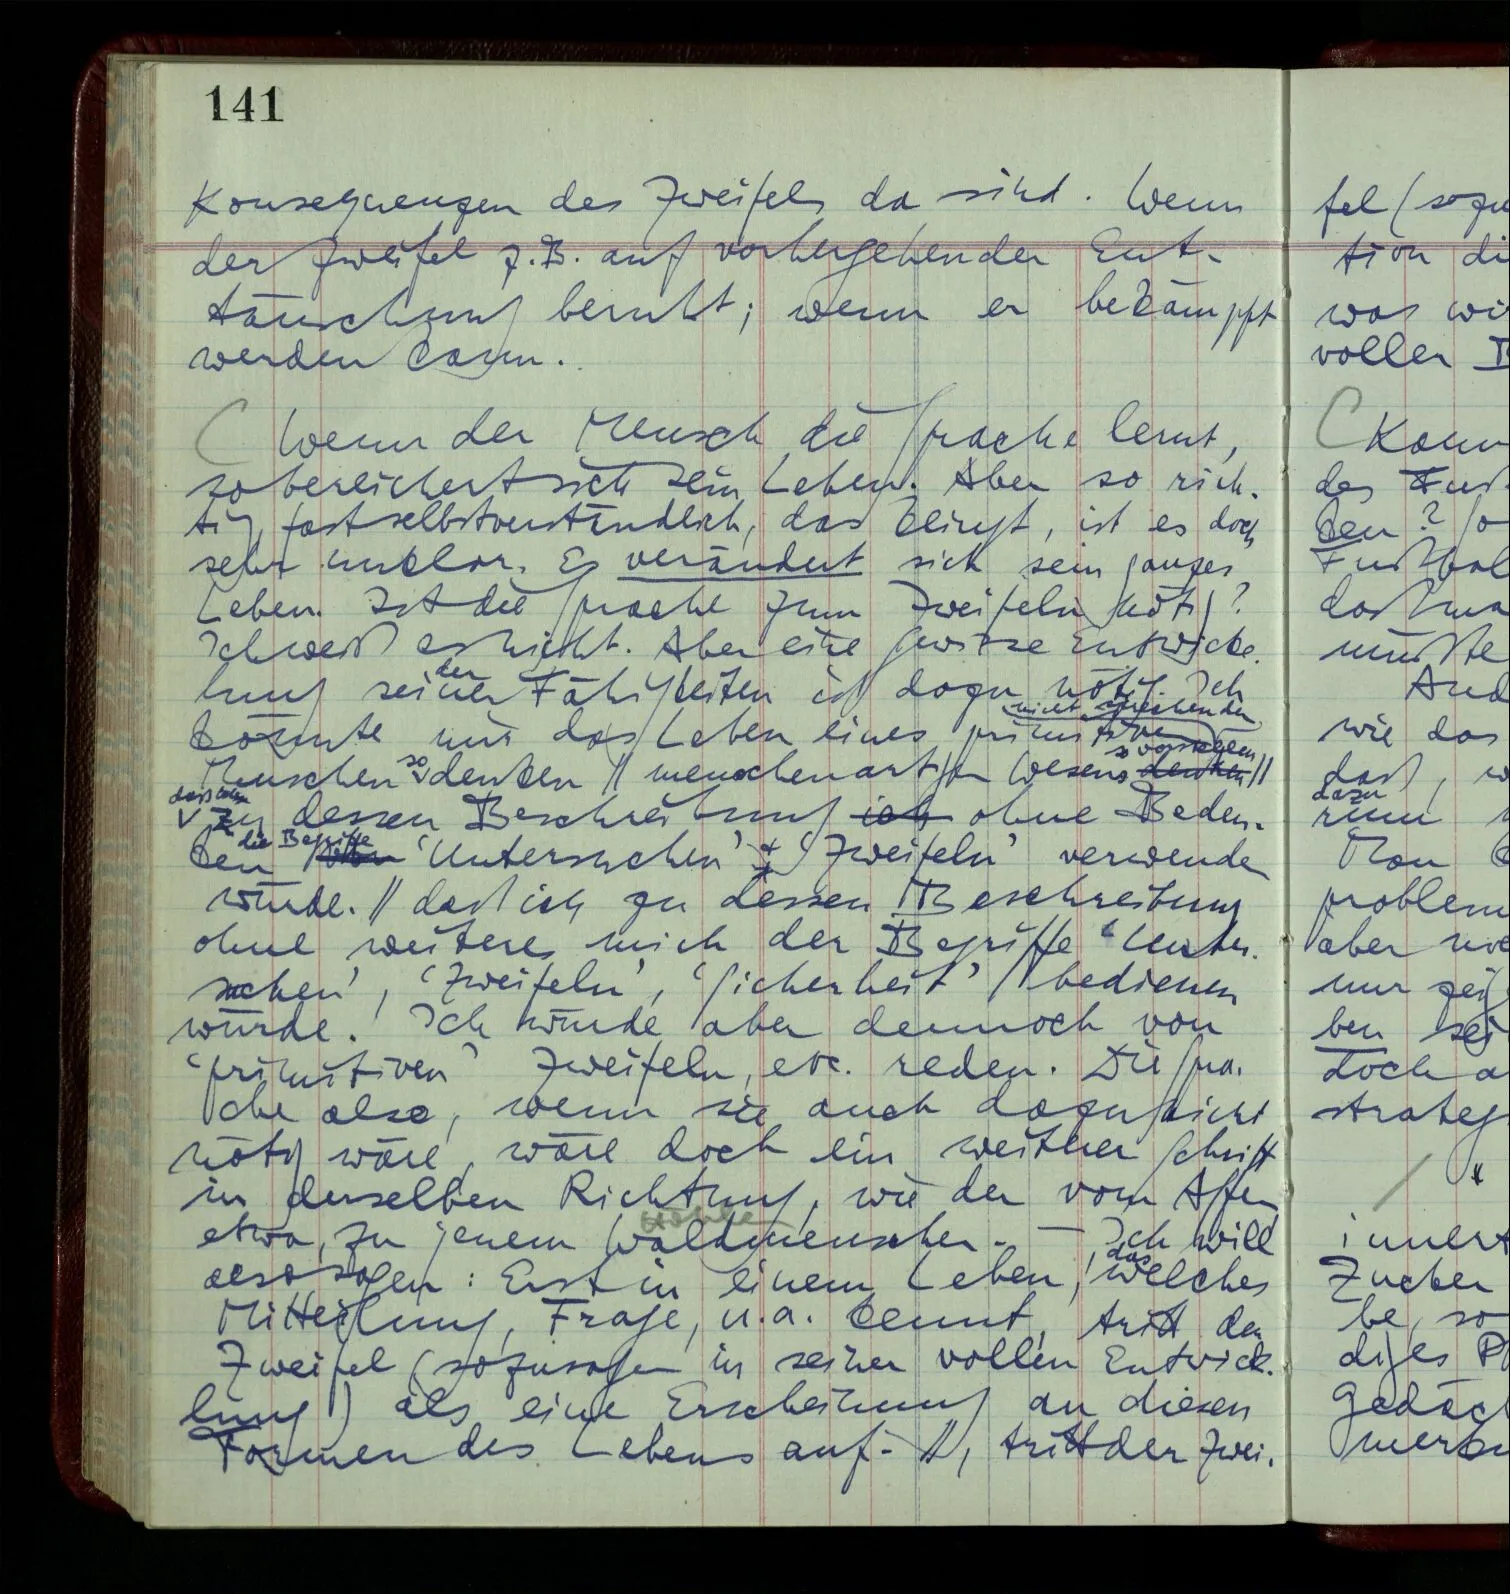 141
Konsequenzen des Zweifels da sind. Wenn
der Zweifel z.B. auf vorhergehender Ent-
täuschung beruht; wenn er bekämpft
werden kann.
Wenn der Mensch die Sprache lernt,
so bereichert sich sein Leben. Aber so rich-
tig, fast selbstverständlich, das klingt, ist es doch
sehr unklar. Es verändert sich sein ganzes
Leben. Ist die Sprache zum Zweifeln nötig?
Ich weiß es nicht. Aber eine gewisse Entwicke-
der
lung seiner Fähigkeiten ist dazu nötig. Ich
nicht sprechenden
könnte mir das Leben eines primitiven
so vorstellen
so
Menschen denken // menschenartigen Wesens denken //
daß ich
zu dessen Beschreibung ich ohne Beden-
die Begriffe
ken 'Untersuchen' & 'Zweifeln' verwenden
würde. // daß ich zu dessen Beschreibung
ohne weiteres mich der Begriffe 'Unter-
suchen', 'Zweifeln', 'Sicherheit' bedienen
würde. Ich würde aber dennoch von
'primitiven' Zweifeln, etc. reden. Die Spra-
che also, wenn sie auch dazu nicht
nötig wäre, wäre doch ein weiterer Schritt
in derselben Richtung, wie der vom Affen
etwa, zu jenem Waldmenschen. — Ich will
das
also sagen: Erst in einem Leben, welches
Mitteilung, Frage, u.a. kennt, tritt der
Zweifel (sozusagen in seiner vollen Entwick-
lung) als eine Erscheinung an diesen
Formen des Lebens auf. //, tritt der Zwei-
fel (sozu
tion di
was wi
voller
Kann
des
ken? So
Fußbal
daß ma
müßte
And
wie das
daß, w
dazu
Man
problem
aber
nur zei
ben sei
doch a
strateg
innert
Zucker
be, so
diges
Gedäch
merk